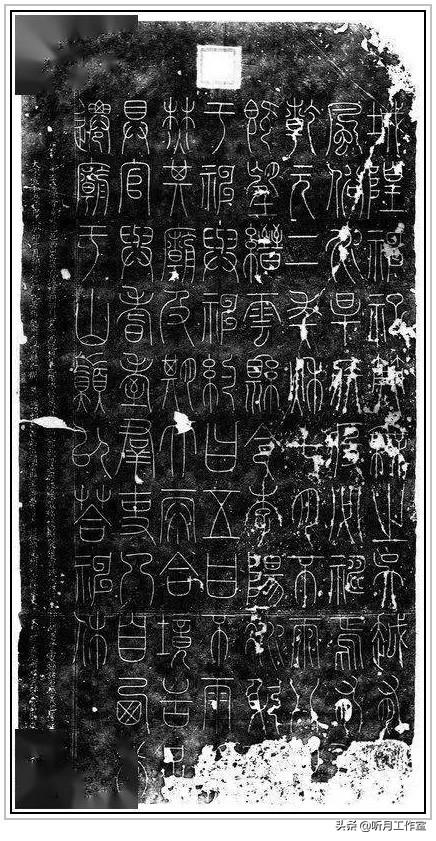 城隍神祀典無之吳越有
風俗水旱疾疫必禱焉有
乾元二年秋七月不雨八
既望縉雲縣令李陽冰躬
于神與神約曰五日不雨
焚其廟及期大雨合境告足
具官與耆耋羣吏乃自西
遷廟于山巔以荅神休
头条 @听月工作室